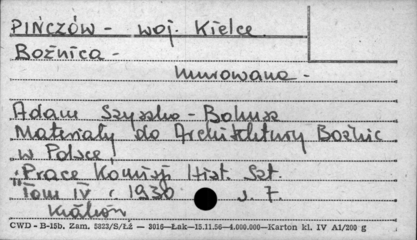 PIŃCZÓW - woj. Kielce
Bożnica -
murowana -
Adam Szyszko - Bohusz
Materiały do Architektury Bożnic
w Polsce
"Prace Komisji Hist. Szt.
Tom IV r 1930 s. 7.
Kraków
CWD - B-15b. Zam. 5823/S/Łż — 3016—Łak—15.11.56—4.000.000—Karton kl. IV A1/200 g